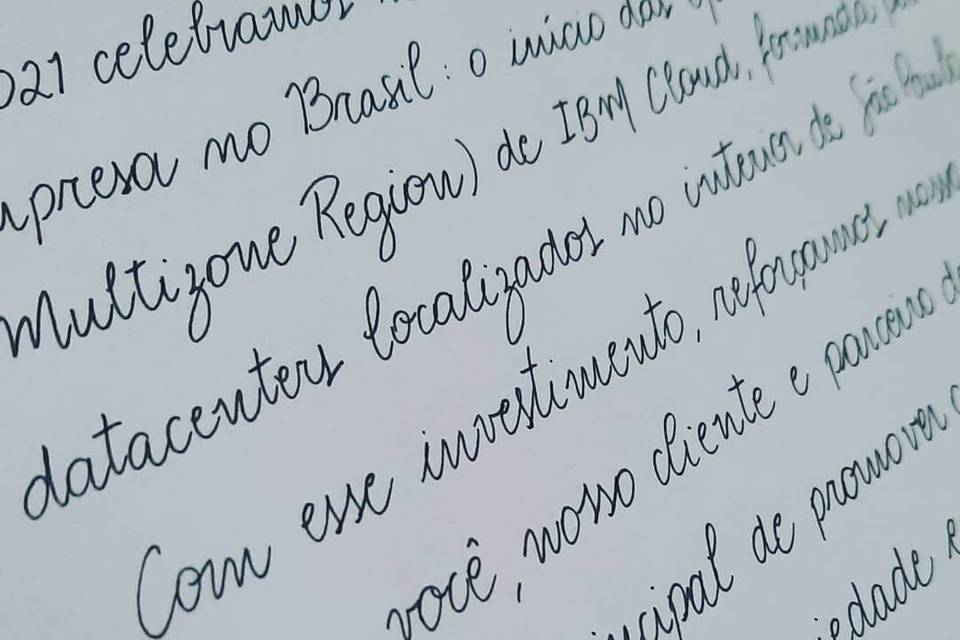 2021 celebramos
no Brasil: o início das
Multizone Region) de IBM Cloud, formada
datacenters localizados no interior de São Paulo
Com esse investimento, reforçamos nosso
você, nosso cliente e parceiro
de promover